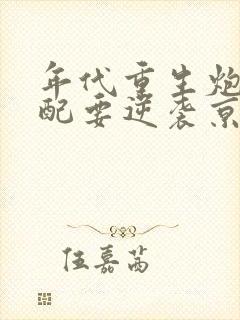 年代重生炮
配要逆袭京
伍嘉茜